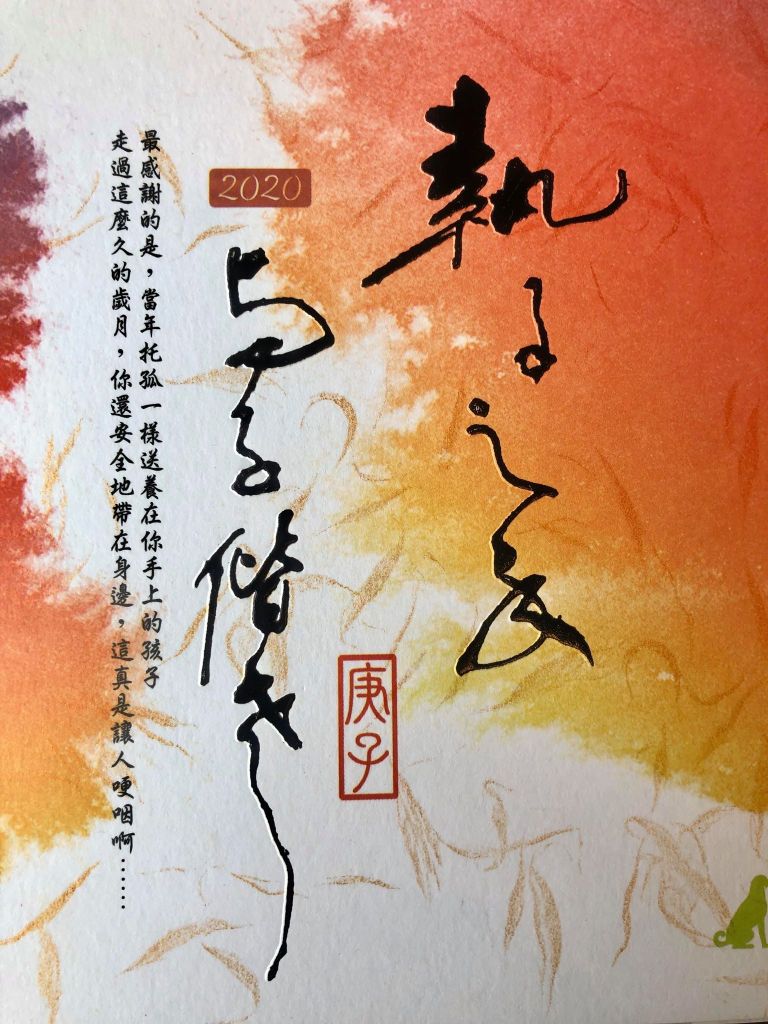 執子之手
與子偕老
2020
庚子
最感謝的是，當年托孤一樣送養在你手上的孩子
走過這麼久的歲月，你還安全地帶在身邊，這真是讓人哽咽啊……